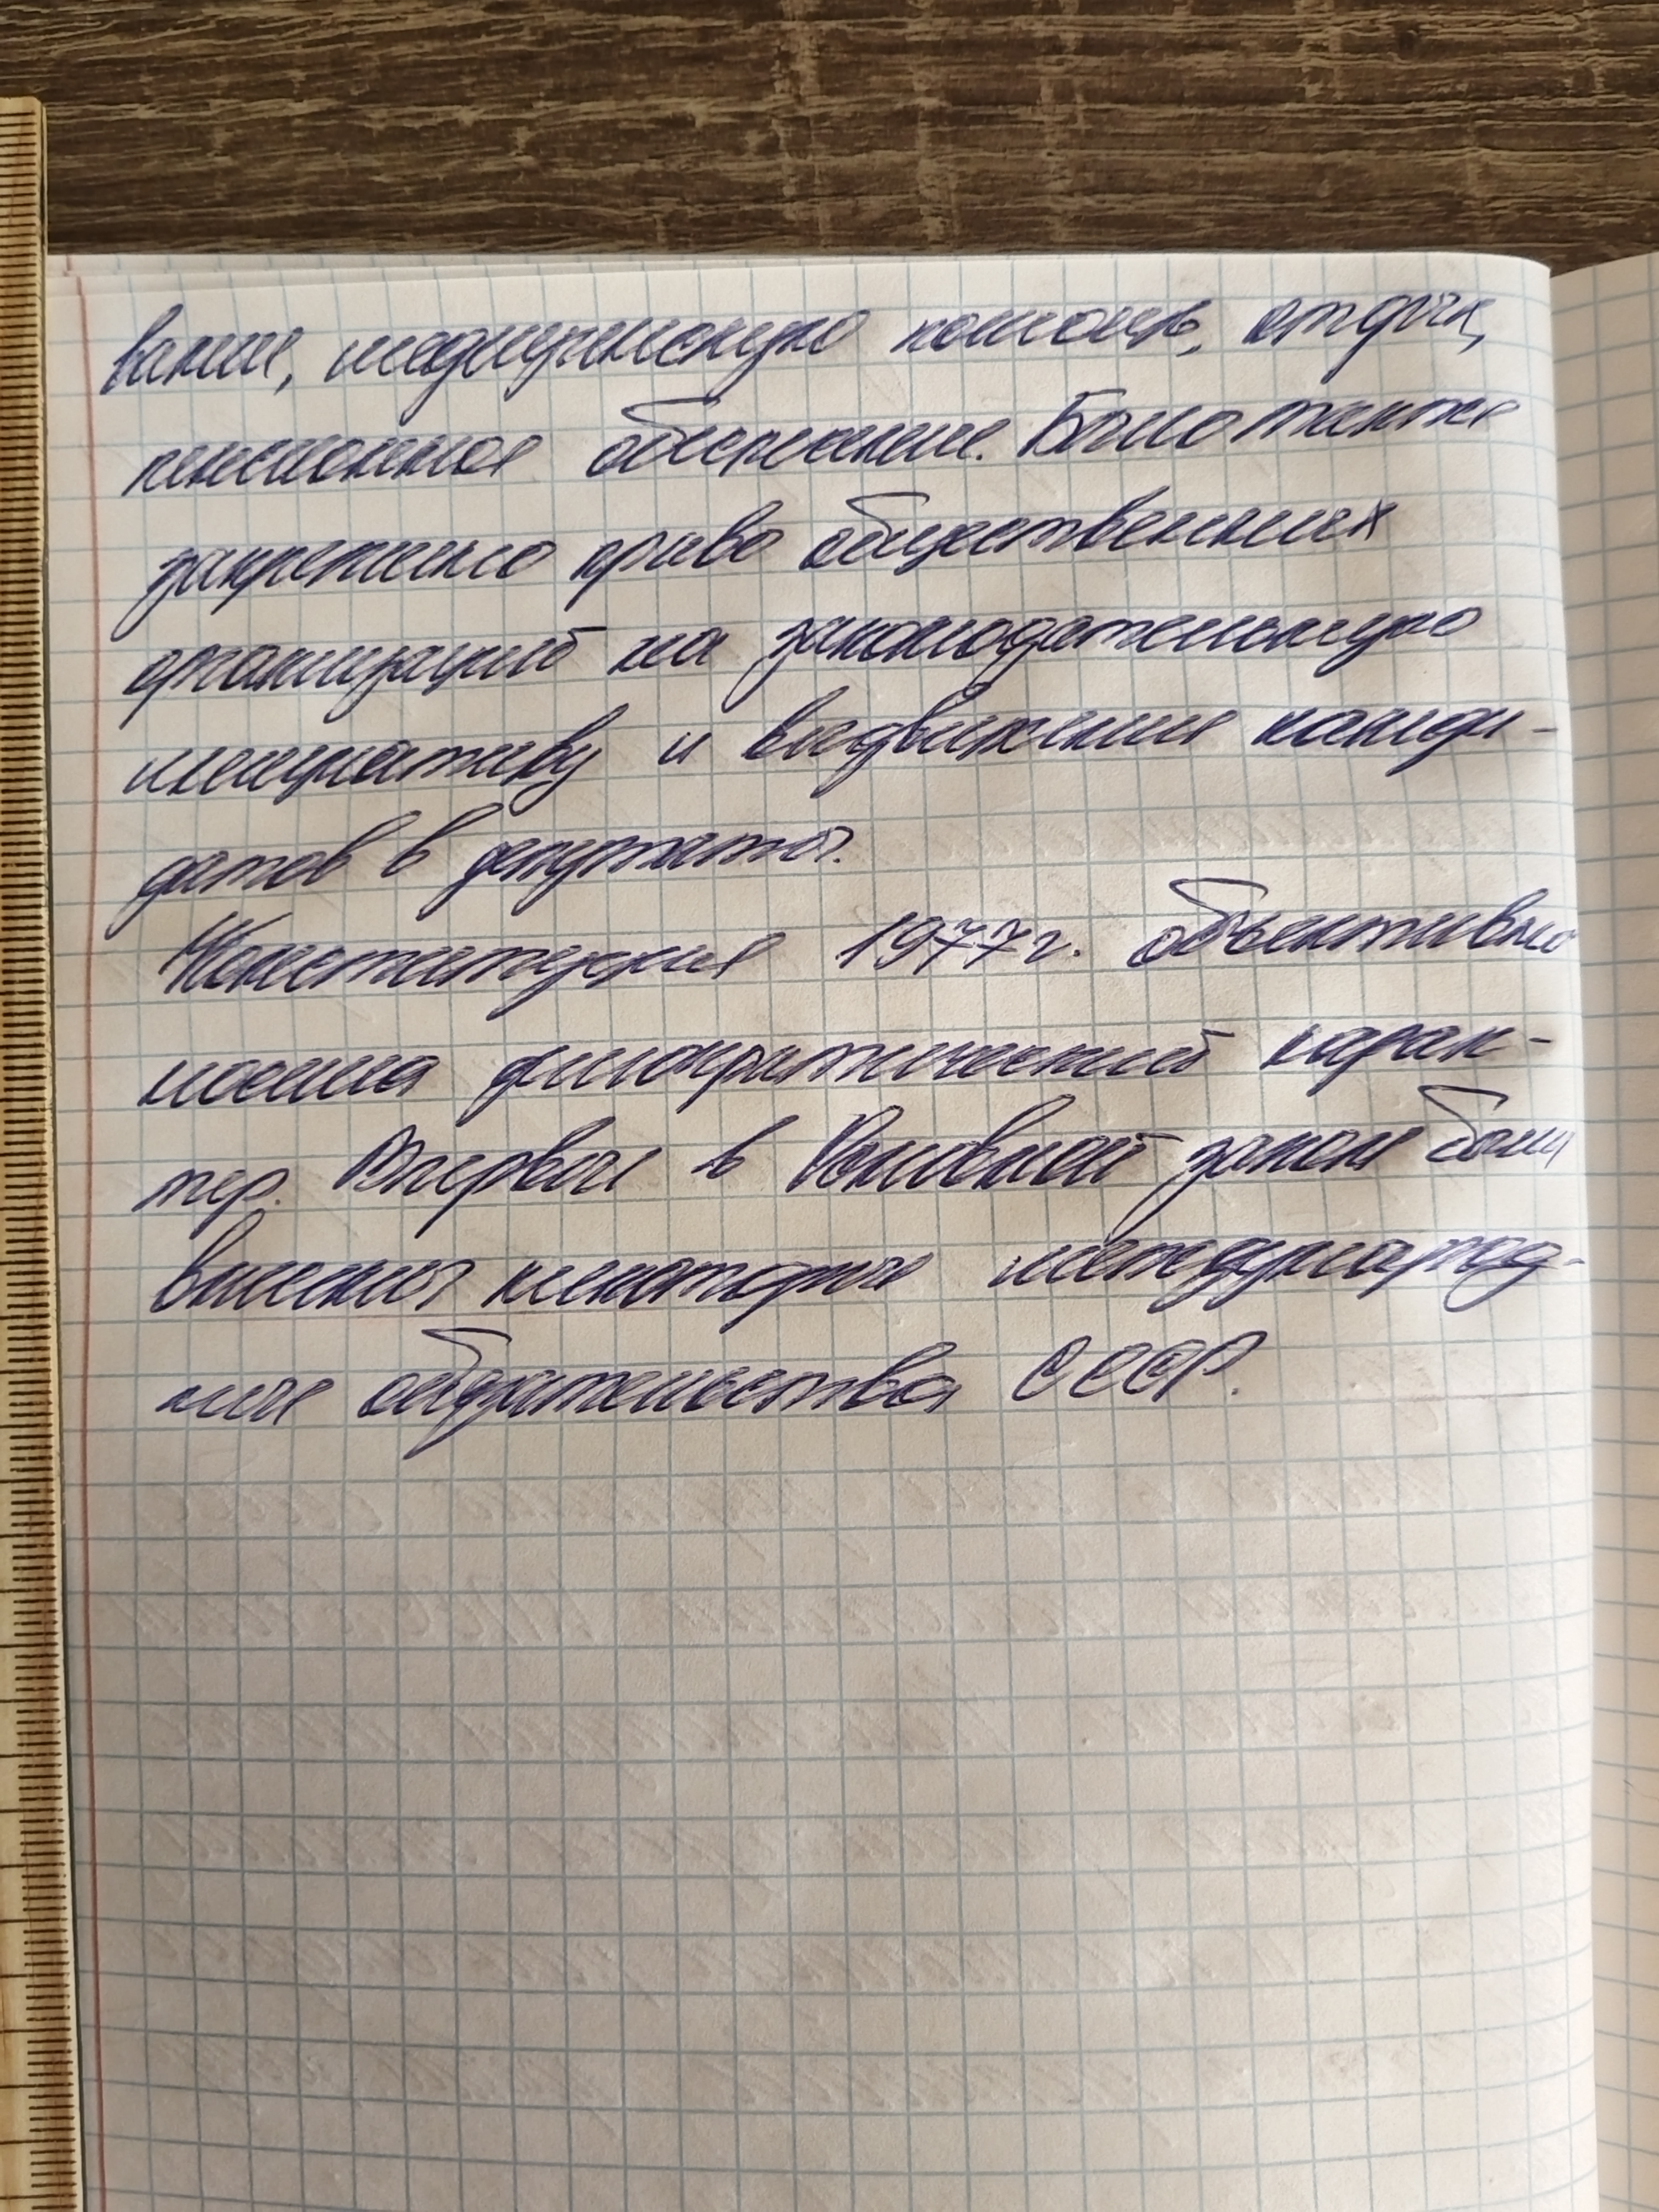 вание, медицинскую помощь, отдых,
пенсионное обеспечение. Было также
закреплено право общественных
организаций на законодательную
инициативу и выдвижение канди-
датов в депутаты.
Конституция 1977 г. объективно
носила демократический харак-
тер. Впервые в Основной закон были
внесены некоторые международ-
ные обязательства СССР.